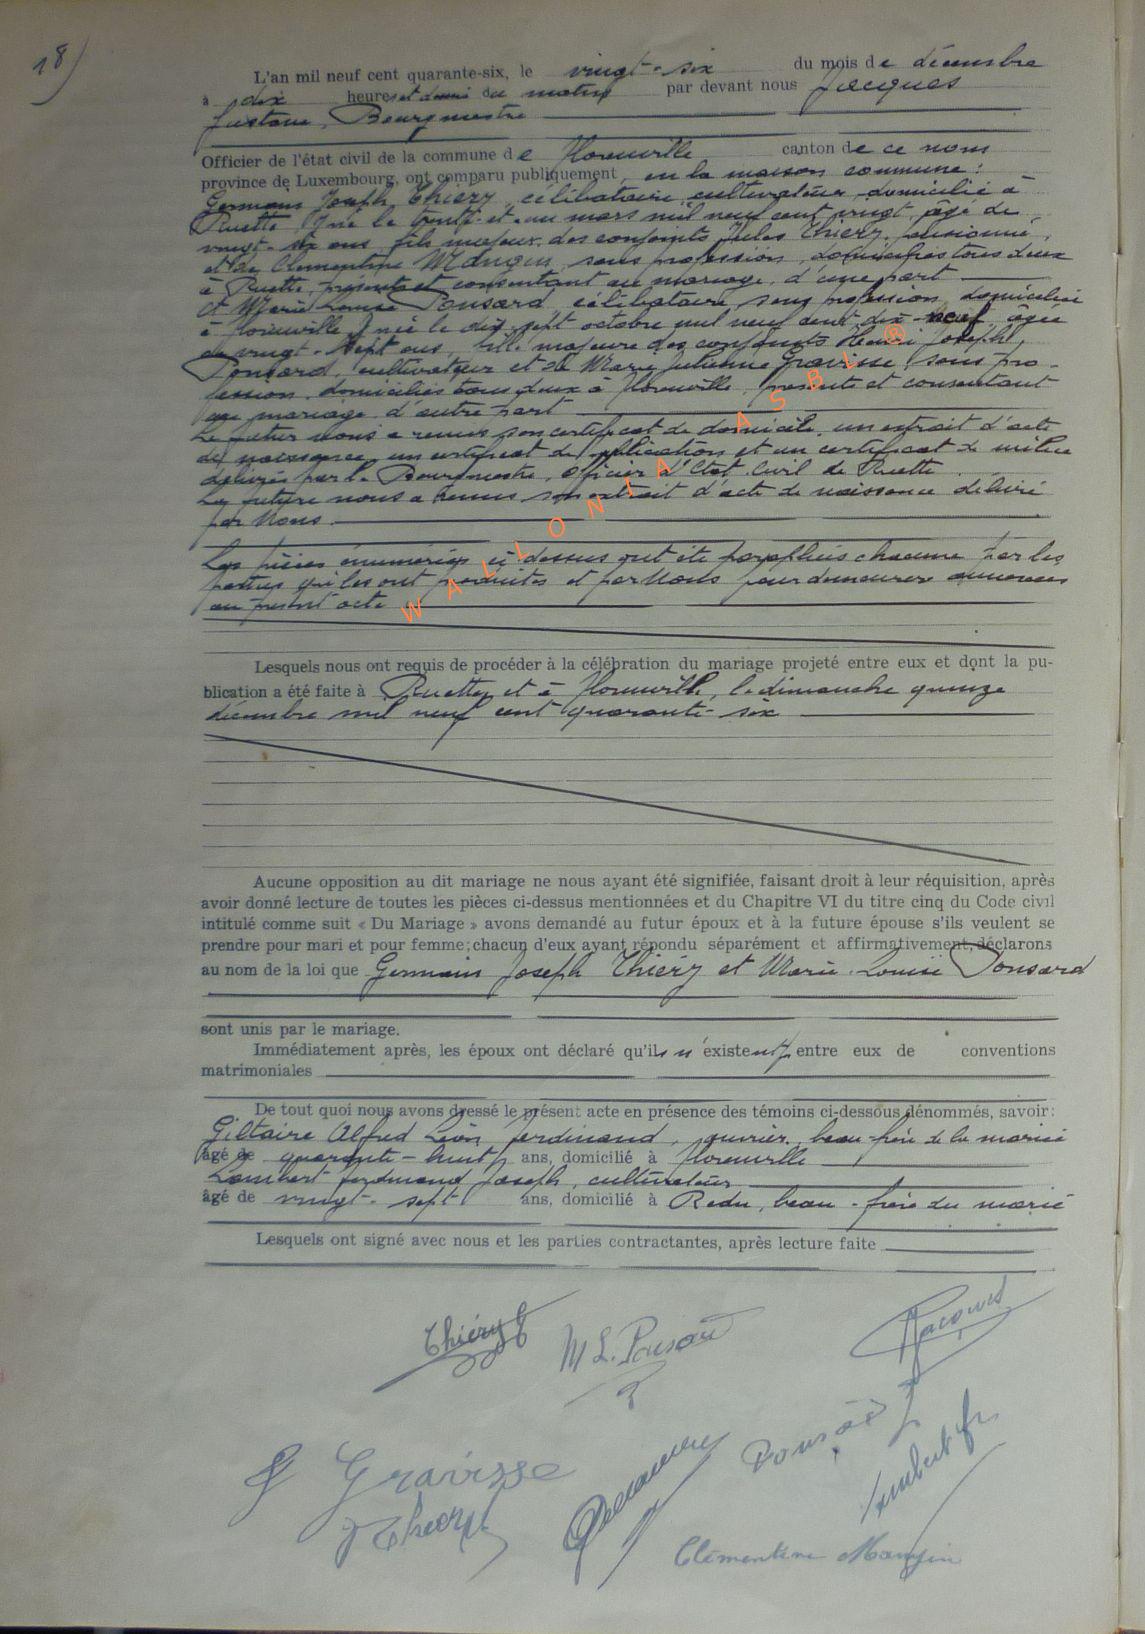 18)
L'an mil neuf cent quarante-six, le vingt-six du mois de décembre
à dix heures et demie du matin par devant nous Jacques
Gustave, Bourgmestre
Officier de l'état civil de la commune de Florenville canton de ce nom
province de Luxembourg, ont comparu publiquement en la maison commune:
Germain Joseph Thiéry, célibataire, cultivateur, domicilié à
Ruette, né le trente-et-un mars mil neuf cent vingt, âgé de
vingt-six ans, fils majeur des conjoints Jules Thiéry, pensionné,
et de Clémentine Mangin, sans profession, domiciliés tous deux
à Ruette, présents et consentant au mariage, d'une part
et Marie Louise Ponsard, célibataire, sans profession, domiciliée
à Florenville, née le dix-sept octobre mil neuf cent dix-neuf, âgée
de vingt-sept ans, fille majeure des conjoints Henri Joseph
Ponsard, cultivateur et de Marie Julienne Gravisse, sans pro-
fession, domiciliés tous deux à Florenville, présents et consentant
au mariage d'autre part
Le futur nous a remis son certificat de domicile, un extrait d'acte
de naissance, un certificat de publication et un certificat de milice
délivrés par le Bourgmestre, Officier d'Etat Civil de Ruette
La future nous a remis son extrait d'acte de naissance délivré
par Nous.
Les pièces énumérées ci-dessus ont été paraphées chacune par les
parties qui les ont produites et par Nous pour demeurer annexées
au présent acte
WALLONIA ASBL ®
Lesquels nous ont requis de procéder à la célébration du mariage projeté entre eux et dont la pu-
blication a été faite à Ruette et à Florenville, le dimanche quinze
décembre mil neuf cent quarante-six
Aucune opposition au dit mariage ne nous ayant été signifiée, faisant droit à leur réquisition, après
avoir donné lecture de toutes les pièces ci-dessus mentionnées et du Chapitre VI du titre cinq du Code civil
intitulé comme suit « Du Mariage » avons demandé au futur époux et à la future épouse s'ils veulent se
prendre pour mari et pour femme; chacun d'eux ayant répondu séparément et affirmativement, déclarons
au nom de la loi que Germain Joseph Thiéry et Marie-Louise Ponsard
sont unis par le mariage.
Immédiatement après, les époux ont déclaré qu'ils n'existent entre eux de conventions
matrimoniales
De tout quoi nous avons dressé le présent acte en présence des témoins ci-dessous dénommés, savoir:
Giltaire Alfred Léon Ferdinand, ouvrier, beau-frère de la mariée
âgé de quarante-huit ans, domicilié à Florenville
Lambert Ferdinand Joseph, cultivateur
âgé de vingt-sept ans, domicilié à Redu, beau-frère du marié
Lesquels ont signé avec nous et les parties contractantes, après lecture faite
Thiéry G
M L. Ponsard
Jacques
J Gravisse
Ponsard
Lambert f
J Thiery
Clémentine Mangin